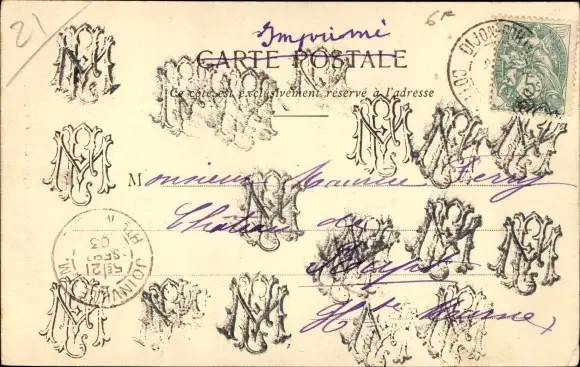 21/
6F
Imprimé
CARTE POSTALE
Ce côté est exclusivement réservé à l'adresse
DIJON
CÔTE
5c
Monsieur Maurice Ferry
Château de
Hte Marne
JOINVILLE
Hte M
5E/21
SEPT
03